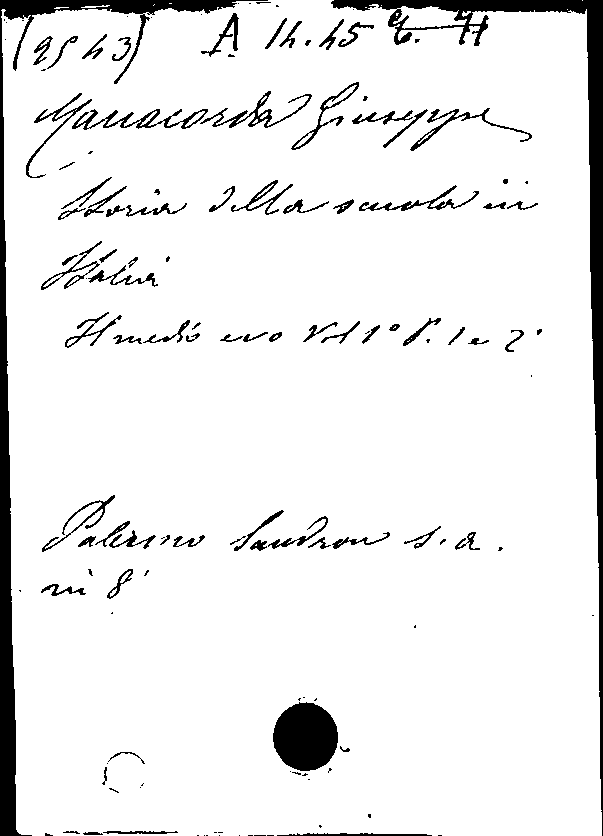 (9543) A 14.45
Manacorda Giuseppe
Storia della scuola in
Italia
Il medio evo Vol 1° P. 1 e 2ª
Palermo Sandron s.a.
in 8°